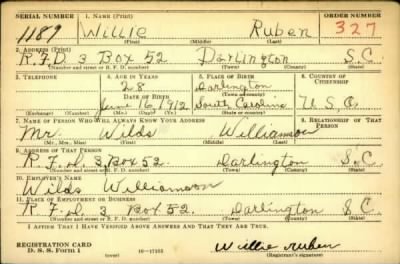 SERIAL NUMBER 1. NAME (Print) ORDER NUMBER
1189 Willie Ruben 327
(First) (Middle) (Last)
2. ADDRESS (Print)
R.F.D. 3 Box 52 Darlington S.C.
(Number and street or R. F. D. number) (Town) (County) (State)
3. TELEPHONE 4. AGE IN YEARS 5. PLACE OF BIRTH 6. COUNTRY OF CITIZENSHIP
28 Darlington
DATE OF BIRTH (Town or county)
June 16, 1912 South Carolina U.S.A.
(Exchange) (Number) (Mo.) (Day) (Yr.) (State or country)
7. NAME OF PERSON WHO WILL ALWAYS KNOW YOUR ADDRESS 8. RELATIONSHIP OF THAT PERSON
Mr. Wilds Williamson
(Mr., Mrs., Miss) (First) (Middle) (Last)
9. ADDRESS OF THAT PERSON
R.F.D. 3. Box 52. Darlington S.C.
(Number and street or R. F. D. number) (Town) (County) (State)
10. EMPLOYER'S NAME
Wilds Williamson
11. PLACE OF EMPLOYMENT OR BUSINESS
R.F.D. 3 Box 52. Darlington S.C.
(Number and street or R. F. D. number) (Town) (County) (State)
I AFFIRM THAT I HAVE VERIFIED ABOVE ANSWERS AND THAT THEY ARE TRUE.
REGISTRATION CARD
D. S. S. Form 1 (over) Willie Ruben
(Registrant's signature)